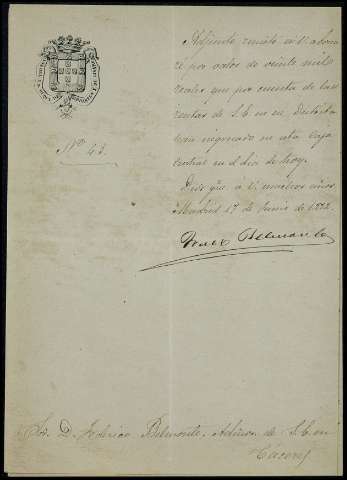 Nº 43.
Adjunto remito á V. abona
ré por valor de veinte mil
reales que por cuenta de las
rentas de S.E. en su distrito
han ingresado en esta caja
central en el dia de hoy.
Dios gue á V. muchos años
Madrid 17 de Junio de 1872.
Belmonte
Sor. D. Federico Belmonte. Admor. de S.E. en
Cáceres